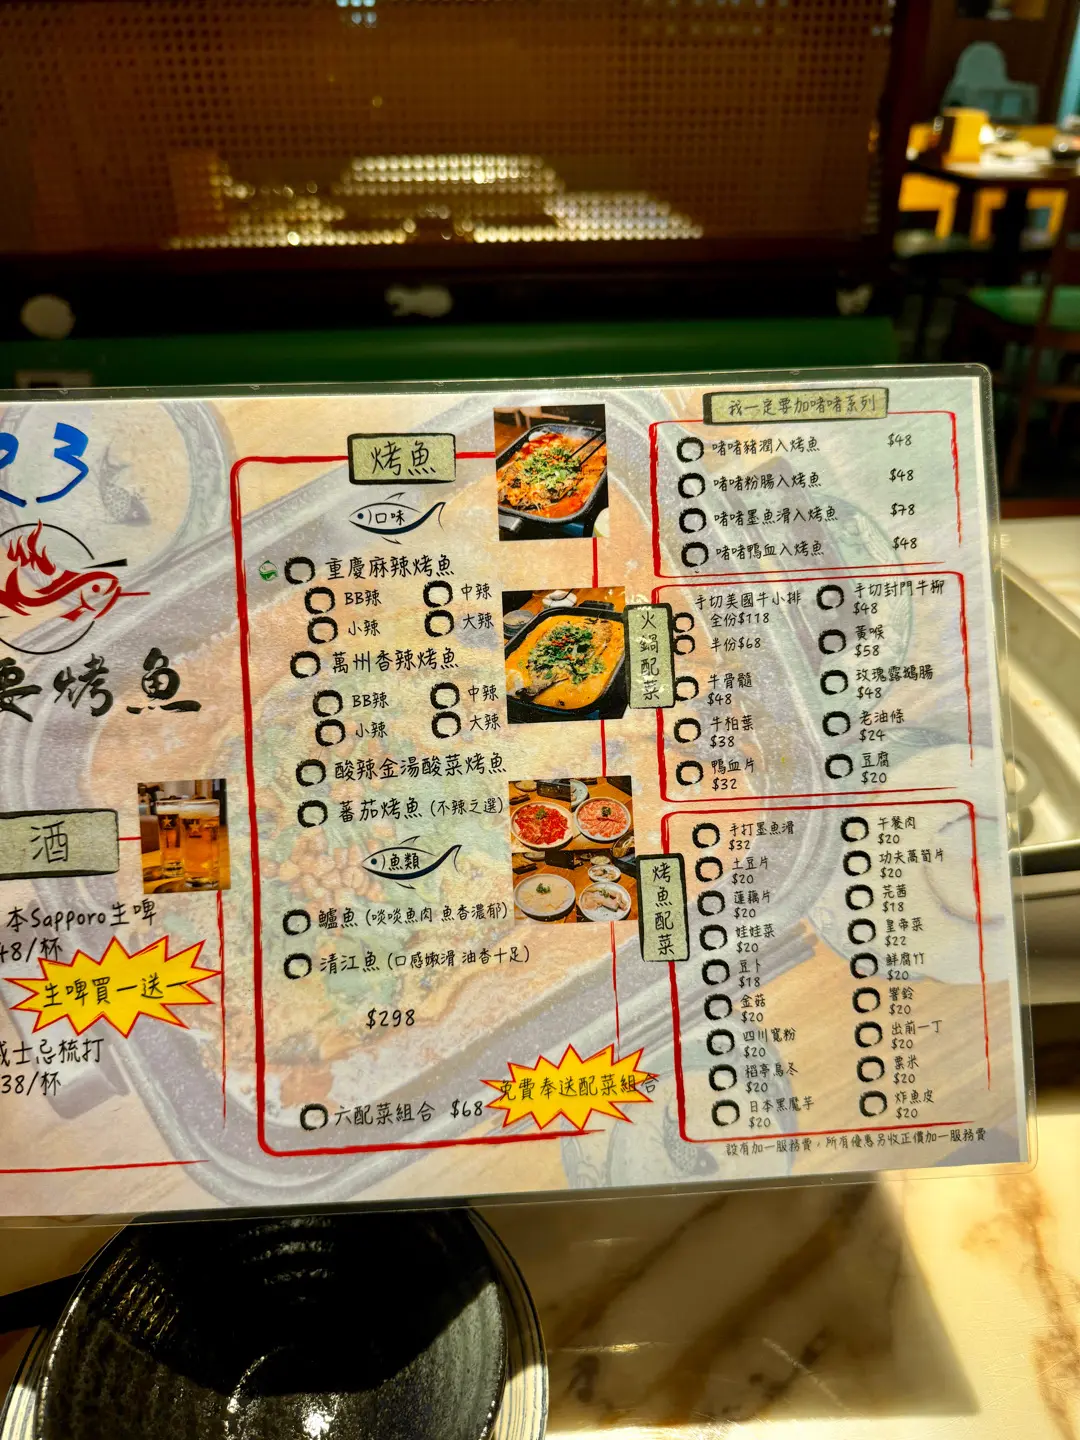 23
要烤魚
酒
本Sapporo生啤
48/杯
生啤買一送一
威士忌梳打
38/杯
烤魚
口味
重慶麻辣烤魚
BB辣
中辣
小辣
大辣
萬州香辣烤魚
BB辣
中辣
小辣
大辣
酸辣金湯酸菜烤魚
蕃茄烤魚(不辣之選)
魚類
鱸魚(啖啖魚肉 魚香濃郁)
清江魚(口感嫩滑 油香十足)
$298
六配菜組合 $68
免費奉送配菜組合
我一定要加啫啫系列
啫啫豬潤入烤魚 $48
啫啫粉腸入烤魚 $48
啫啫墨魚滑入烤魚 $78
啫啫鴨血入烤魚 $48
火鍋配菜
手切美國牛小排
全份$118
半份$68
牛骨髓
$48
牛柏葉
$38
鴨血片
$32
手切封門牛柳
$48
黃喉
$58
玫瑰露鵝腸
$48
老油條
$24
豆腐
$20
烤魚配菜
手打墨魚滑
$32
土豆片
$20
蓮藕片
$20
娃娃菜
$20
豆卜
$18
金菇
$20
四川寬粉
$20
稻亭烏冬
$20
日本黑魔芋
$20
午餐肉
$20
功夫萵筍片
$20
芫茜
$18
皇帝菜
$22
鮮腐竹
$20
響鈴
$20
出前一丁
$20
粟米
$20
炸魚皮
$20
設有加一服務費，所有優惠另收正價加一服務費